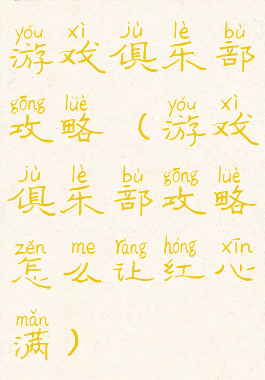 yóu xì jù lè bù
游戏俱乐部
gōng lüè yóu xì
攻略（游戏
jù lè bù gōng lüè
俱乐部攻略
zěn me ràng hóng xīn
怎么让红心
mǎn
满）